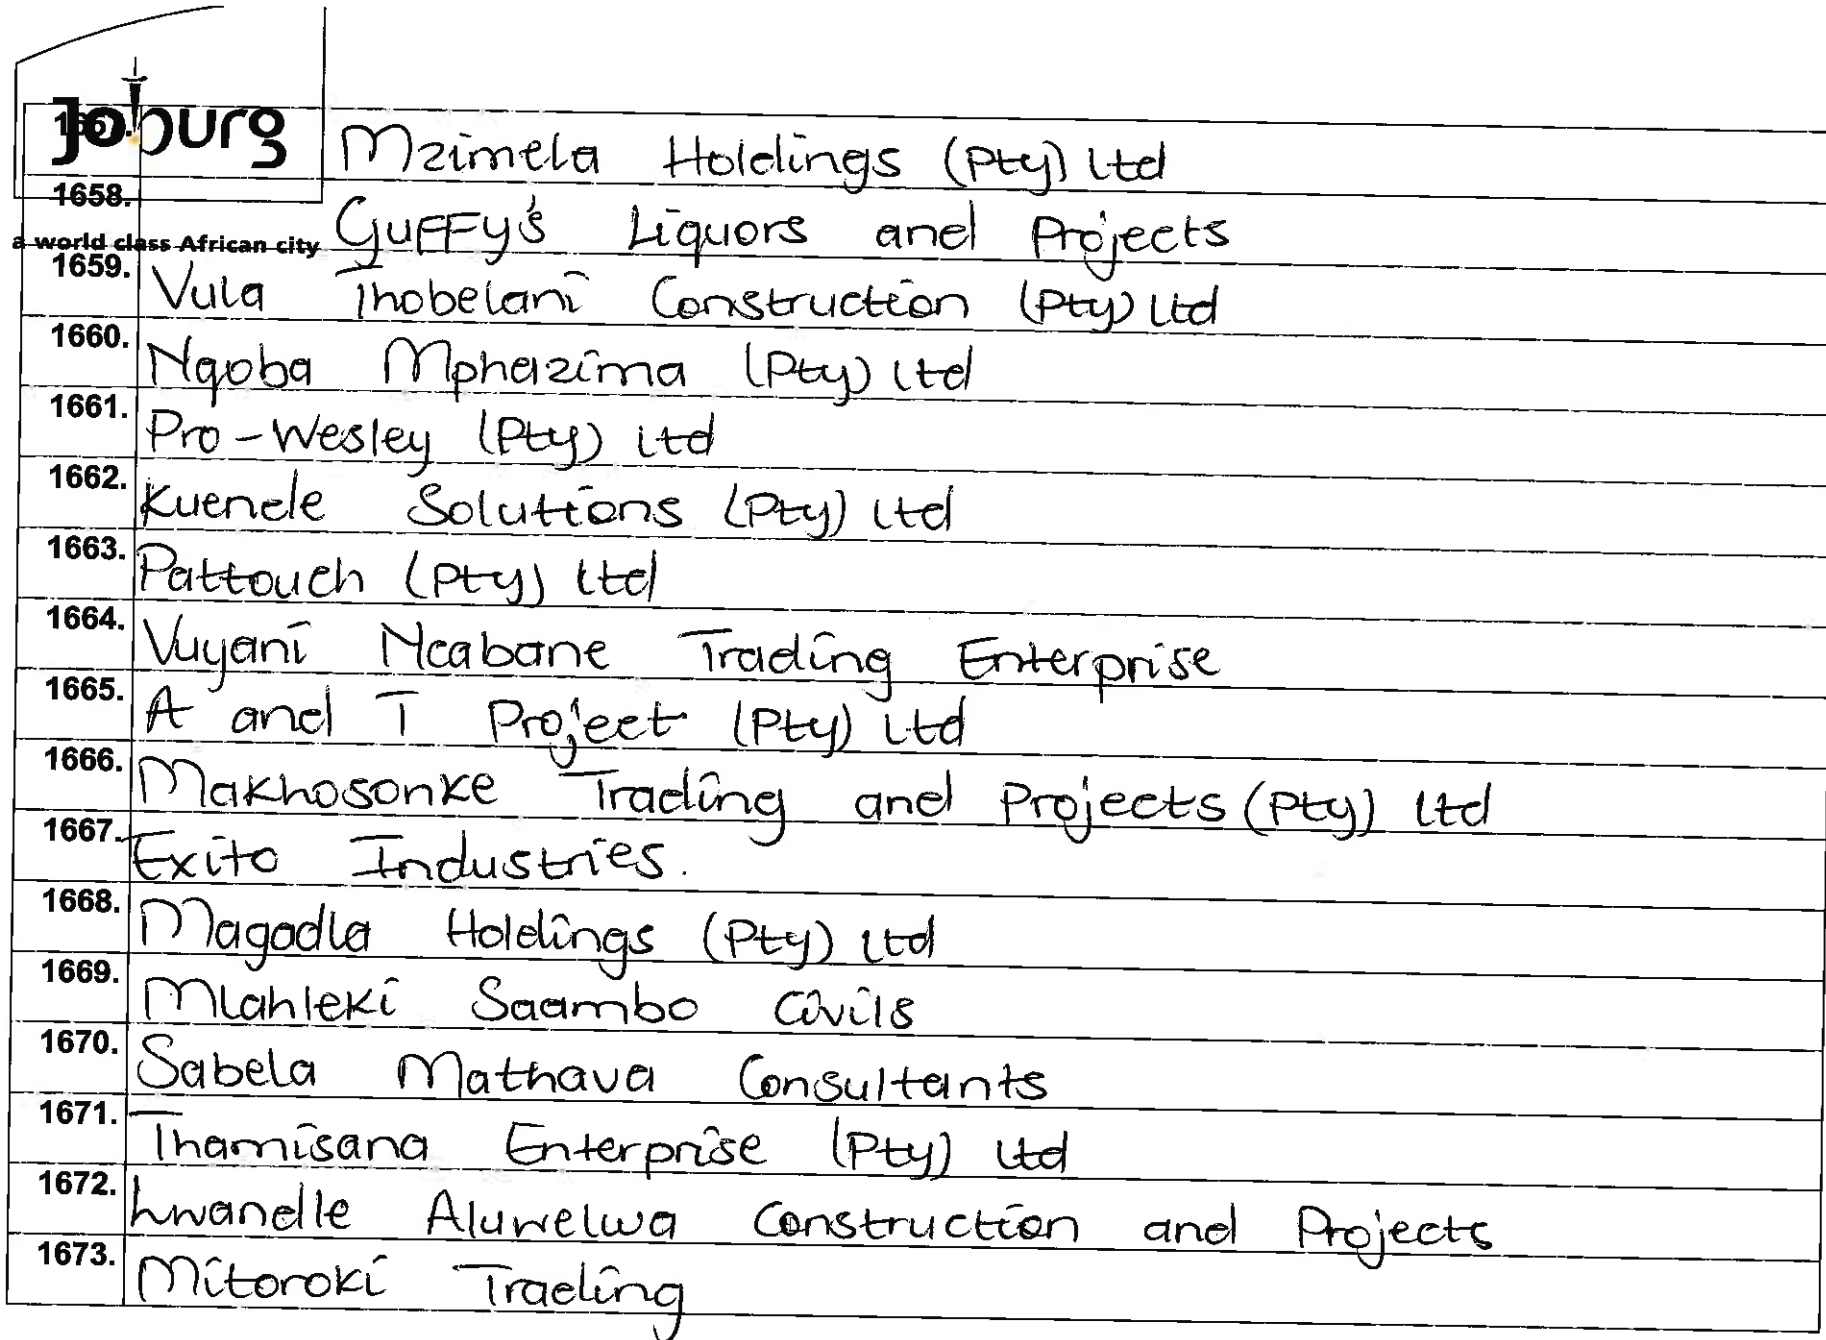 Joburg
1657. Mzimela Holdings (Pty) Ltd
1658. Guffy's Liquors and Projects
a world class African city
1659. Vula Thobelani Construction (Pty) Ltd
1660. Nqoba Mphazima (Pty) Ltd
1661. Pro-Wesley (Pty) Ltd
1662. Kuenele Solutions (Pty) Ltd
1663. Pattouch (Pty) Ltd
1664. Vuyani Ncabane Trading Enterprise
1665. A and T Project (Pty) Ltd
1666. Makhosonke Trading and Projects (Pty) Ltd
1667. Exito Industries.
1668. Magadla Holdings (Pty) Ltd
1669. Mlahleki Saambo Civils
1670. Sabela Mathava Consultants
1671. Thamisana Enterprise (Pty) Ltd
1672. Lwandle Aluwelwa Construction and Projects
1673. Mitoroki Trading